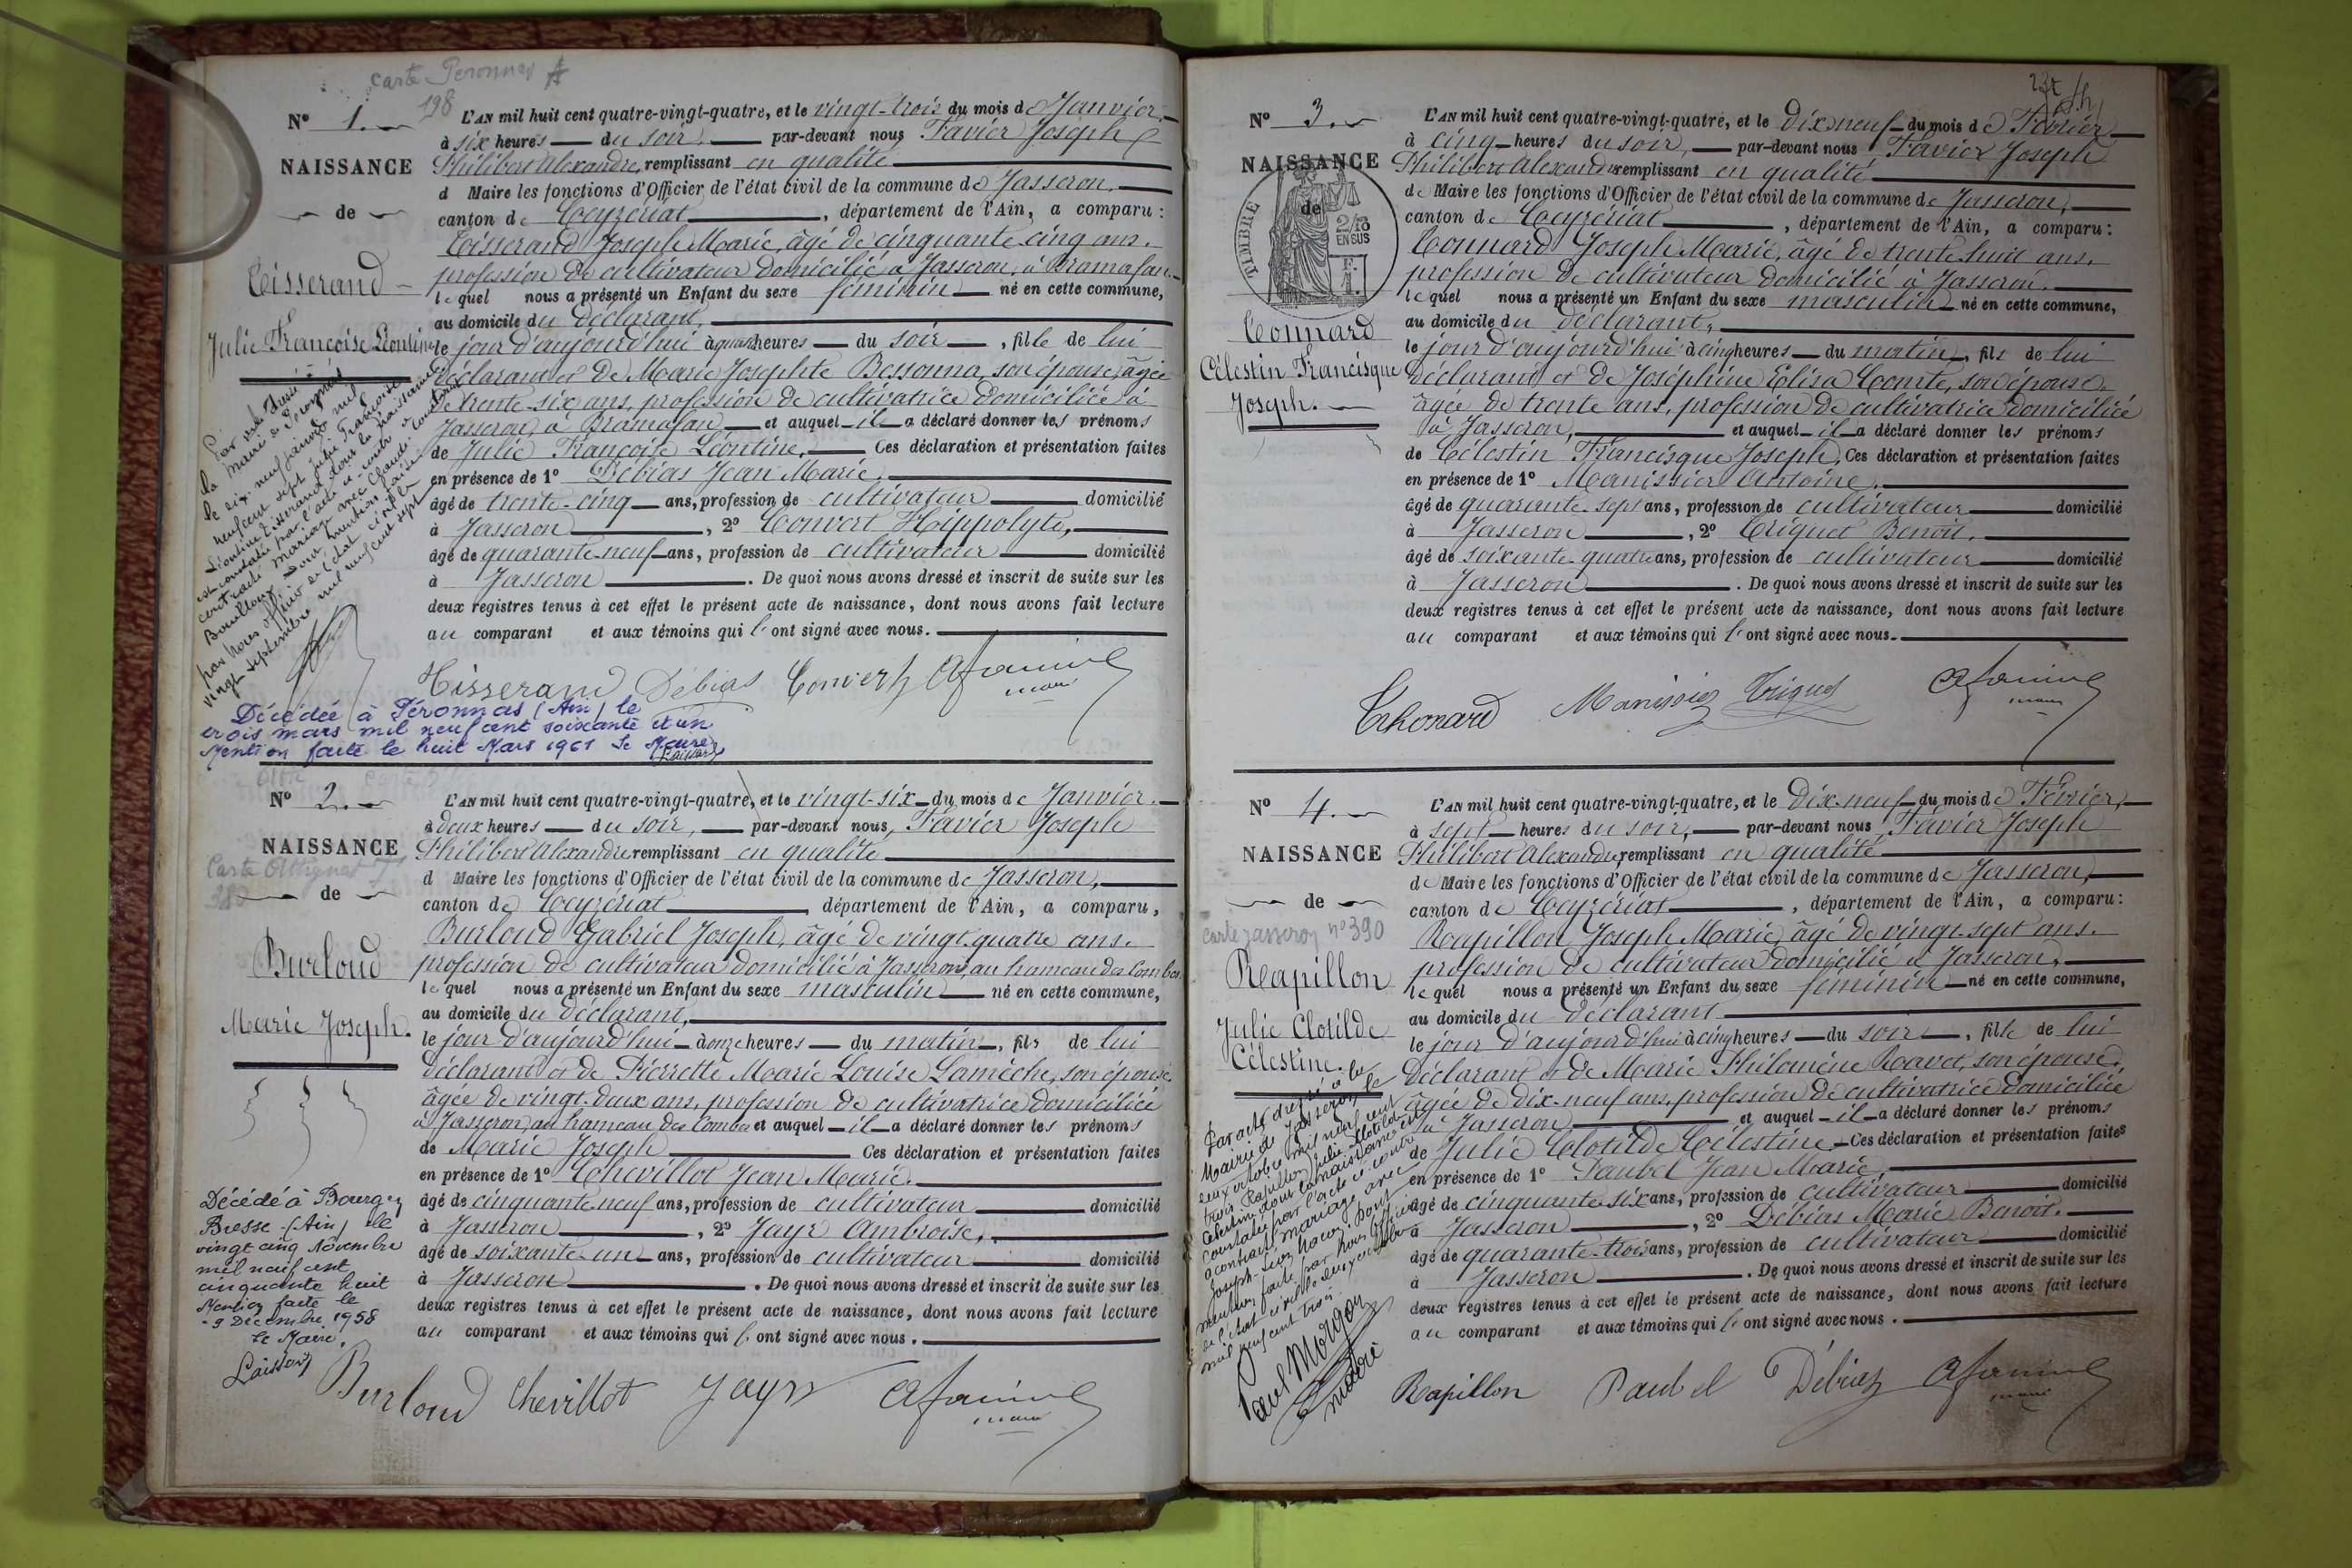 carte Peronnas
198
N° 1.
NAISSANCE
de
Tisserand
Julie Françoise Léontine
L'AN mil huit cent quatre-vingt-quatre, et le vingt-trois du mois de Janvier,
à six heures du soir, par-devant nous Favier Joseph
Philibert Alexandre, remplissant en qualité
d Maire les fonctions d'Officier de l'état civil de la commune de Jasseron,
canton de Ceyzériat, département de l'Ain, a comparu :
Tisserand Joseph Marie, âgé de cinquante cinq ans,
profession de cultivateur domicilié à Jasseron, à Bramafan
lequel nous a présenté un Enfant du sexe féminin né en cette commune,
au domicile du déclarant,
le jour d'aujourd'hui à quatre heures du soir, fille de lui
déclarant et de Marie Josephte Bessonna, son épouse, âgée
de trente-six ans, profession de cultivatrice domiciliée à
Jasseron, à Bramafan et auquel il a déclaré donner les prénoms
de Julie Françoise Léontine, Ces déclaration et présentation faites
en présence de 1° Débias Jean Marie,
âgé de trente-cinq ans, profession de cultivateur domicilié
à Jasseron, 2° Convert Hippolyte,
âgé de quarante-neuf ans, profession de cultivateur domicilié
à Jasseron. De quoi nous avons dressé et inscrit de suite sur les
deux registres tenus à cet effet le présent acte de naissance, dont nous avons fait lecture
au comparant et aux témoins qui l'ont signé avec nous.
Par acte dressé à
la mairie de Péronnas
le dix-neuf janvier mil
neuf cent sept Julie Françoise
Léontine Tisserand dont la naissance
est constatée par l'acte ci-contre a
contracté mariage avec Claude
Bouilloux. Dont mention faite
par nous officier de l'état civil le
vingt septembre mil neuf cent sept
Tisserand Débias Convert A favier
maire
Décédée à Péronnas (Ain) le
trois mars mil neuf cent soixante et un
Mention faite le huit Mars 1961 Le Maire
N° 2.
NAISSANCE
Carte Attignat
380
de
Burloud
Marie Joseph.
L'AN mil huit cent quatre-vingt-quatre, et le vingt-six du mois de Janvier.
à deux heures du soir, par-devant nous, Favier Joseph
Philibert Alexandre remplissant en qualité
d Maire les fonctions d'Officier de l'état civil de la commune de Jasseron,
canton de Ceyzériat, département de l'Ain, a comparu,
Burloud Gabriel Joseph, âgé de vingt-quatre ans.
profession de cultivateur domicilié à Jasseron, au hameau des Combes
lequel nous a présenté un Enfant du sexe masculin né en cette commune,
au domicile du déclarant,
le jour d'aujourd'hui à onze heures du matin, fils de lui
déclarant et de Pierrette Marie Louise Lamèche, son épouse,
âgée de vingt-deux ans, profession de cultivatrice domiciliée
à Jasseron, au hameau des Combes et auquel il a déclaré donner les prénoms
de Marie Joseph Ces déclaration et présentation faites
en présence de 1° Chevillot Jean Marie.
âgé de cinquante neuf ans, profession de cultivateur domicilié
à Jasseron, 2° Jayr Ambroise,
âgé de soixante-un ans, profession de cultivateur domicilié
à Jasseron. De quoi nous avons dressé et inscrit de suite sur les
deux registres tenus à cet effet le présent acte de naissance, dont nous avons fait lecture
au comparant et aux témoins qui l'ont signé avec nous.
Décédé à Bourg en
Bresse (Ain) le
vingt cinq Novembre
mil neuf cent
cinquante huit
Mention faite le
9 Décembre 1958
Le Maire.
Burloud Chevillot Jayr A favier
maire
N° 3.
NAISSANCE
de
TIMBRE
2/10
EN SUS
Connard
Célestin Francisque
Joseph.
L'AN mil huit cent quatre-vingt-quatre, et le Dix-neuf du mois de Février
à cinq heures du soir, par-devant nous Favier Joseph
Philibert Alexandre remplissant en qualité
de Maire les fonctions d'Officier de l'état civil de la commune de Jasseron,
canton de Ceyzériat, département de l'Ain, a comparu :
Connard Joseph Marie, âgé de trente huit ans.
profession de cultivateur domicilié à Jasseron.
lequel nous a présenté un Enfant du sexe masculin né en cette commune,
au domicile du déclarant,
le jour d'aujourd'hui à cinq heures du matin, fils de lui
déclarant et de Joséphine Elisa Comte, son épouse.
âgée de trente ans, profession de cultivatrice domiciliée
à Jasseron, et auquel il a déclaré donner les prénoms
de Célestin Francisque Joseph, Ces déclaration et présentation faites
en présence de 1° Manissier Antoine,
âgé de quarante-sept ans, profession de cultivateur domicilié
à Jasseron, 2° Triquet Benoît,
âgé de soixante-quatre ans, profession de cultivateur domicilié
à Jasseron. De quoi nous avons dressé et inscrit de suite sur les
deux registres tenus à cet effet le présent acte de naissance, dont nous avons fait lecture
au comparant et aux témoins qui l'ont signé avec nous.
Manissier Triquet A favier
maire
N° 4.
NAISSANCE
de
carte Jasseron n° 390
Rapillon
Julie Clotilde
Célestine.
L'AN mil huit cent quatre-vingt-quatre, et le Dix-neuf du mois de Février,
à sept heures du soir, par-devant nous Favier Joseph
Philibert Alexandre, remplissant en qualité
de Maire les fonctions d'Officier de l'état civil de la commune de Jasseron,
canton de Ceyzériat, département de l'Ain, a comparu :
Rapillon Joseph Marie, âgé de vingt-sept ans.
profession de cultivateur domicilié à Jasseron,
lequel nous a présenté un Enfant du sexe féminin né en cette commune,
au domicile du déclarant
le jour d'aujourd'hui à cinq heures du soir, fille de lui
déclarant et de Marie Philomène Ravet, son épouse,
âgée de dix-neuf ans, profession de cultivatrice domiciliée
à Jasseron, et auquel il a déclaré donner les prénoms
de Julie Clotilde Célestine Ces déclaration et présentation faites
en présence de 1° Paubel Jean Marie,
âgé de cinquante-six ans, profession de cultivateur domicilié
à Jasseron, 2° Débias Marie Benoît.
âgé de quarante-trois ans, profession de cultivateur domicilié
à Jasseron. De quoi nous avons dressé et inscrit de suite sur les
deux registres tenus à cet effet le présent acte de naissance, dont nous avons fait lecture
au comparant et aux témoins qui l'ont signé avec nous.
Par acte dressé à la
Mairie de Jasseron le
deux octobre mil neuf cent
trois Rapillon Julie Clotilde
Célestine dont la naissance est
constatée par l'acte ci-contre
a contracté mariage avec
Joseph Dont
mention faite par nous officier
de l'état civil le deux octobre
mil neuf cent trois
Paul Morgon
maire
Rapillon Paubel Débiaz A favier
maire